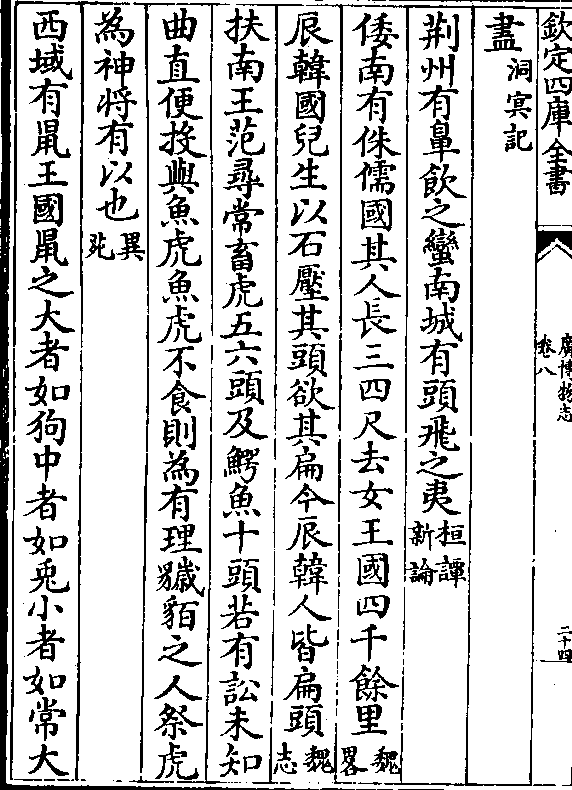 欽定四庫全書
廣博物志
卷八
二十四
盡洞冥記
荆州有鼻飲之蠻南城有頭飛之夷桓譚新論
倭南有侏儒國其人長三四尺去女王國四千餘里魏畧
辰韓國兒生以石壓其頭欲其扁今辰韓人皆扁頭魏志
扶南王范尋常畜虎五六頭及鰐魚十頭若有訟未知
曲直便投與魚虎魚虎不食則為有理貙貊之人祭虎
為神將有以也異苑
西域有鼠王國鼠之大者如狗中者如兎小者如常大